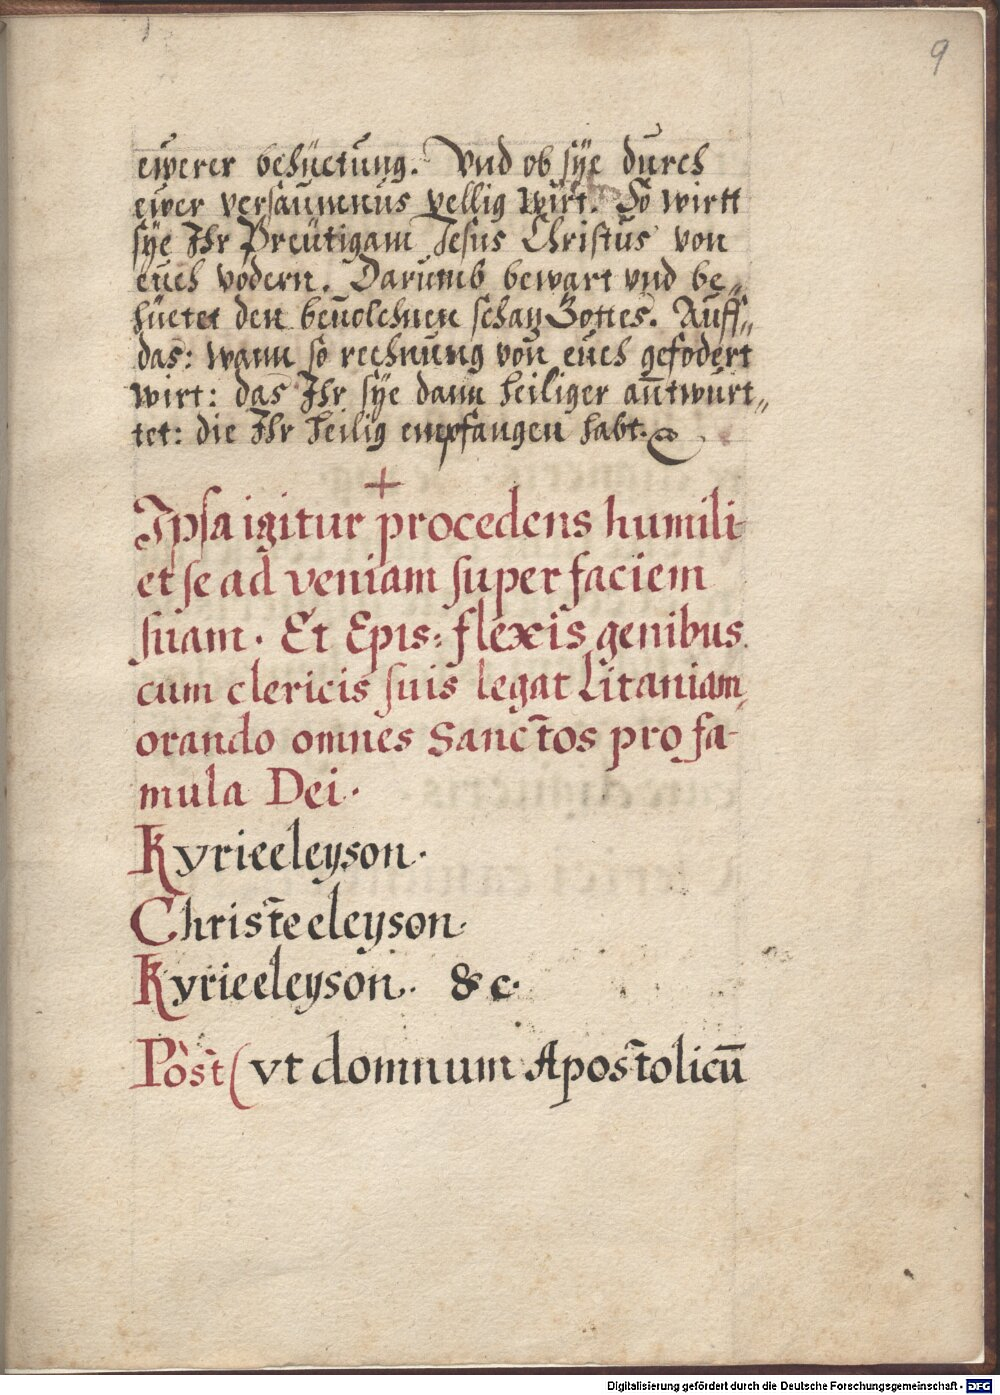 9
ewerer behüetung. Vnd ob sÿe durch
ewer versaumnus vellig wirt. So wirtt
sÿe Ihr Preütigam Jesus Christus von
euch vodern. Darumb bewart vnd be„
hüetet den beuolchnen schatz Gottes. Auff„
das: wann so rechnung von euch gefodert
wirt: das Ihr sÿe dann heiliger anntwurt„
tet: die Ihr heilig empfangen habt.
+
Ipsa igitur procedens humili-
et se ad veniam super faciem
suam. Et Epis: flexis genibus
cum clericis suis legat Litaniam,
orando omnes Sanctos pro fa-
mula Dei.
Kyrieeleyson.
Christeeleyson.
Kyrieeleyson. &c.
Post (vt domnum Apostolicū
Digitalisierung gefördert durch die Deutsche Forschungsgemeinschaft - DFG